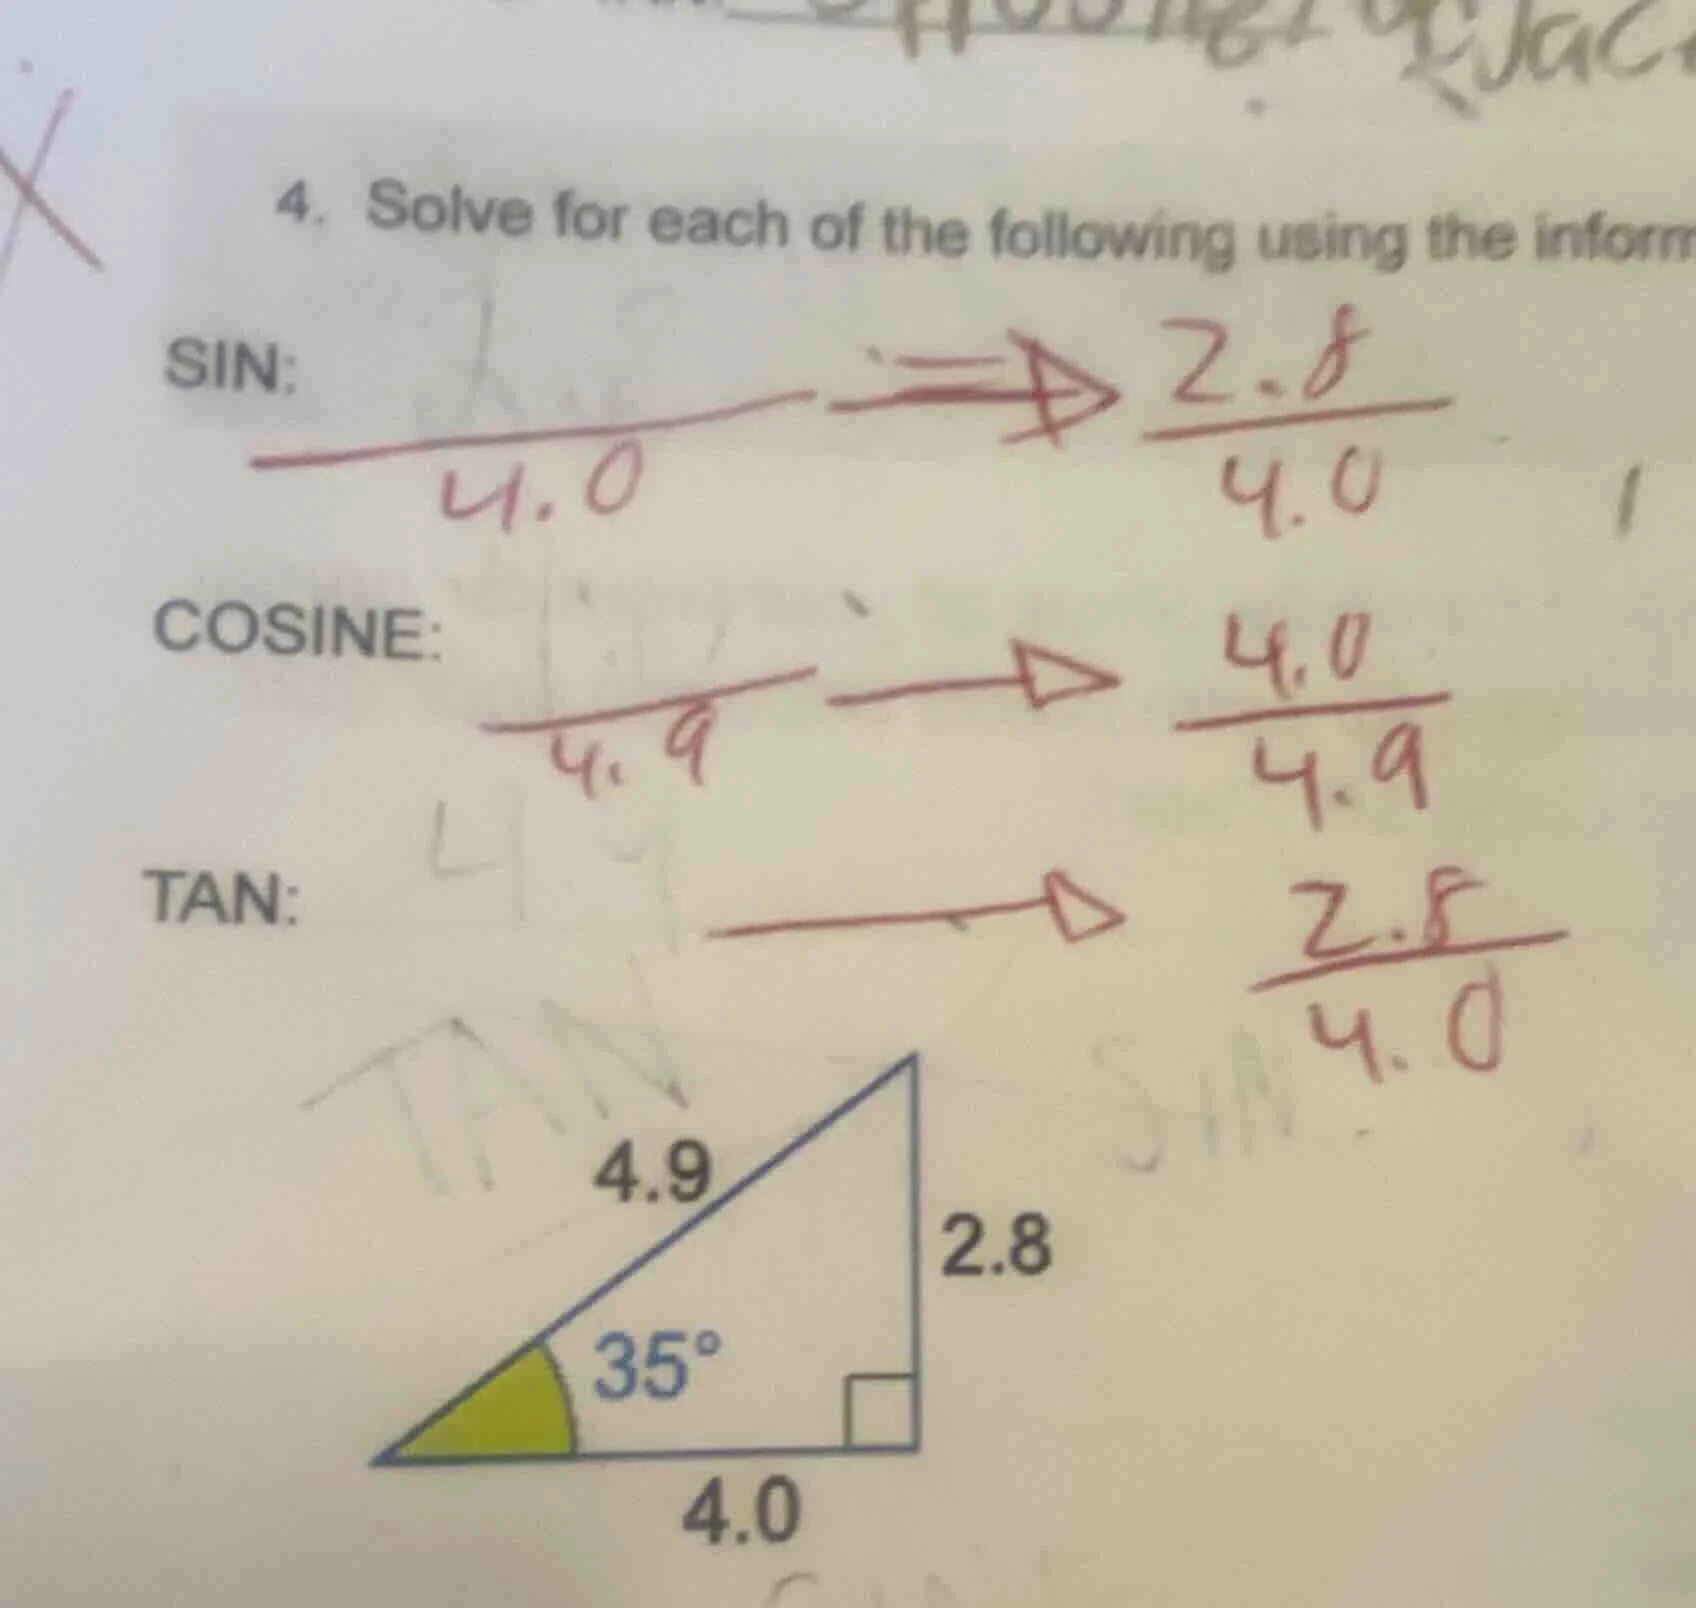 4. Solve for each of the following using the inform
SIN:
4.0
2.8
4.0
COSINE:
4.9
4.0
4.9
TAN:
2.8
4.0
TAN
SIN
4.9
2.8
35°
4.0